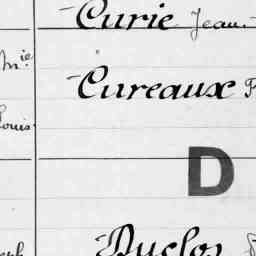 Curie Jean
mie
Cureaux
Louis
D
Duclos